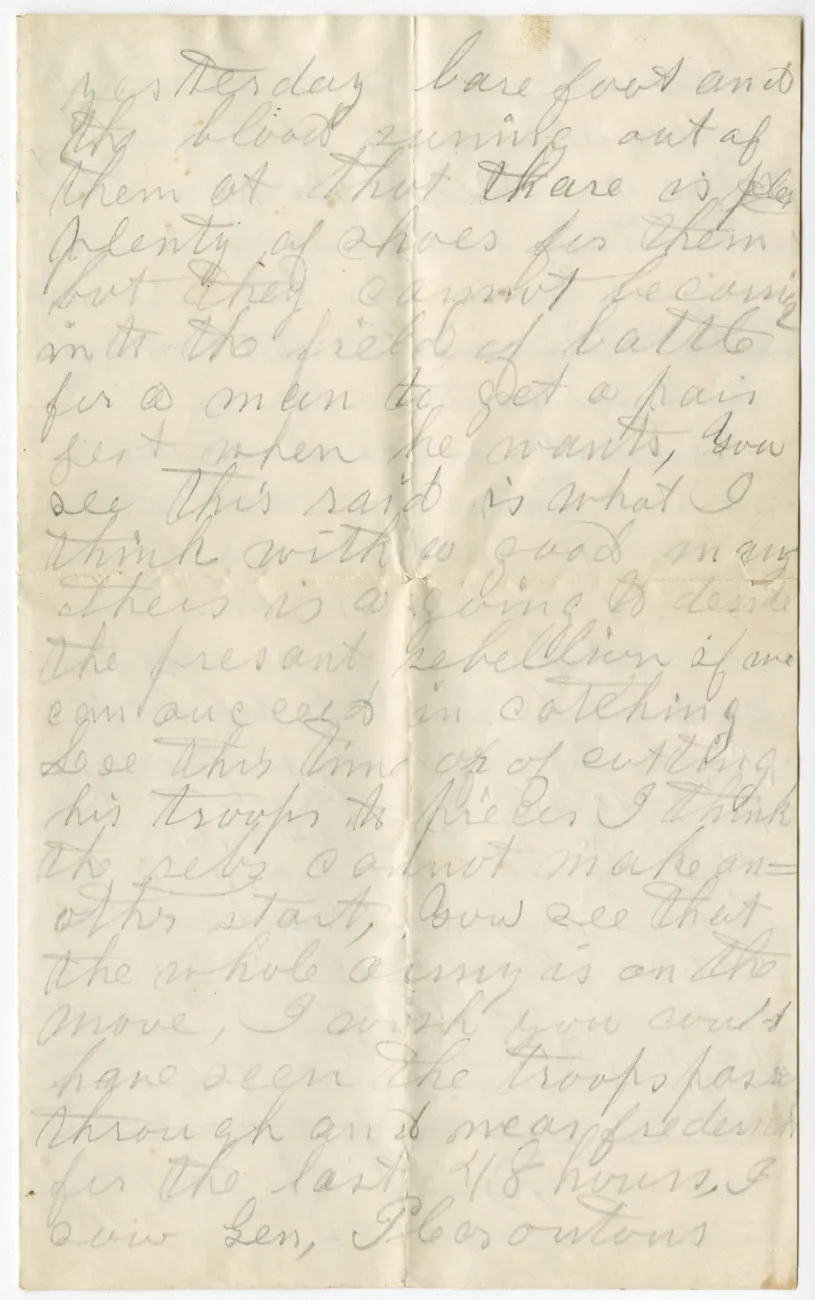 yesterday bare foot and
the blood runing out of
them at that thare is
plenty of shoes for them
but they cannot be carrig
in to the field of battle
for a man to get a pair
just when he wants, You
see this raid is what I
think with a good many
others is a going to deside
the presant rebellion if we
can succeed in catching
Lee this time or of cutting
his troops to pieces I think
the rebs cannot make an=
other start, You see that
the whole army is on the
move, I wish you could
have seen the troops pass
through and near frederick
for the last 48 hours, I
saw Gen, Pleasontons